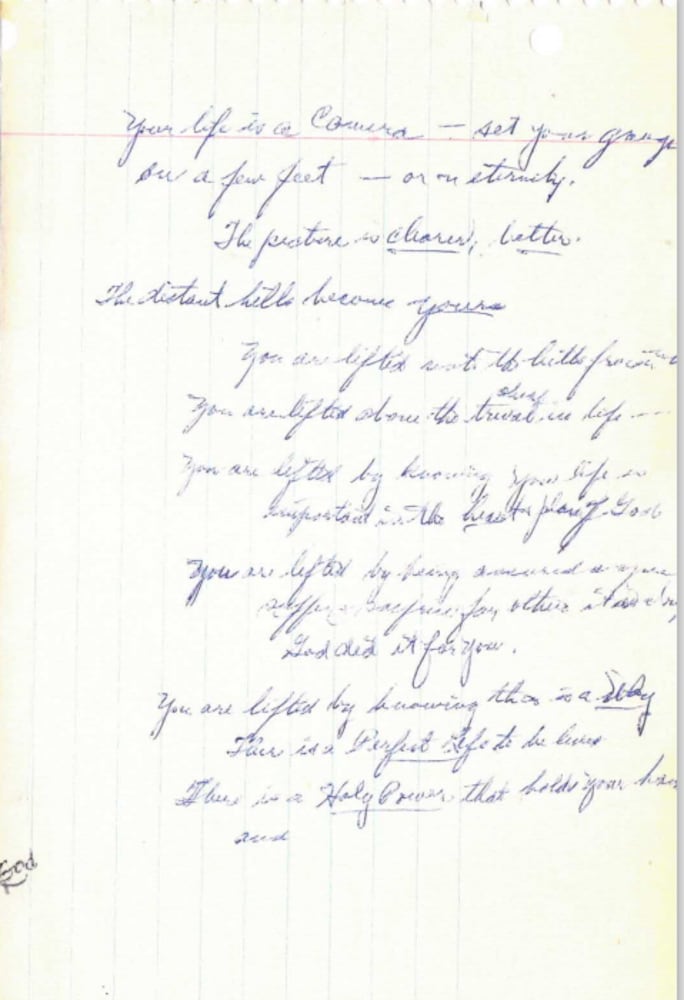 Your life is a Camera — set your gauge
on a few feet — or on eternity.
The picture is clearer, better.
The distant hills become yours
You are lifted the hills from
You are lifted above the trivial in life —
You are lifted by knowing your life is
important in the plan of God
You are lifted by being
for others
God did it for you.
You are lifted by knowing this is a Way
There is a Perfect Life to be lived
There is a Holy Power that holds your
and
God